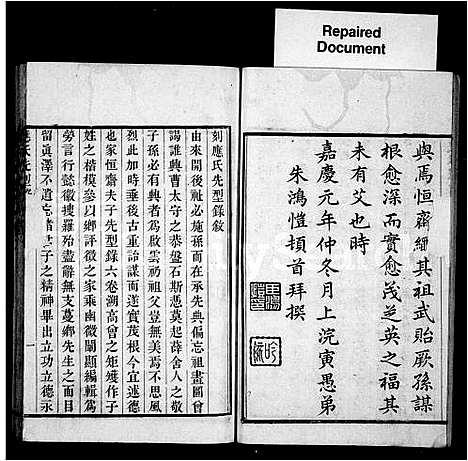 Repaired
Document
與焉恒齋繩其祖武貽厥孫謀
根愈深而實愈茂芝英之福其
未有艾也時
嘉慶元年仲冬月上浣寅愚弟
朱鴻愷頓首拜撰
刻應氏先型錄敘
由來開後祉必施孫而在承先典偏忘祖畫圖曾
謁誰興曹太守之恭盤石斯慿莫起薛舍人之敬
子孫必有興者為啟雲礽祖父豈無美焉不思風
烈此加時垂後古重詒謀而實茂根今宜述德
也家恒齋夫子先型錄六卷溯高曾之矩矱作子
姓之楷模參以鄉評徵之家乘幽微闡顯編輯為
勞言行懿徽搜羅殆盡辭無支蔓鄉先生之面目
留眞澤不遺忘 子之精神畢出立功立德永
一